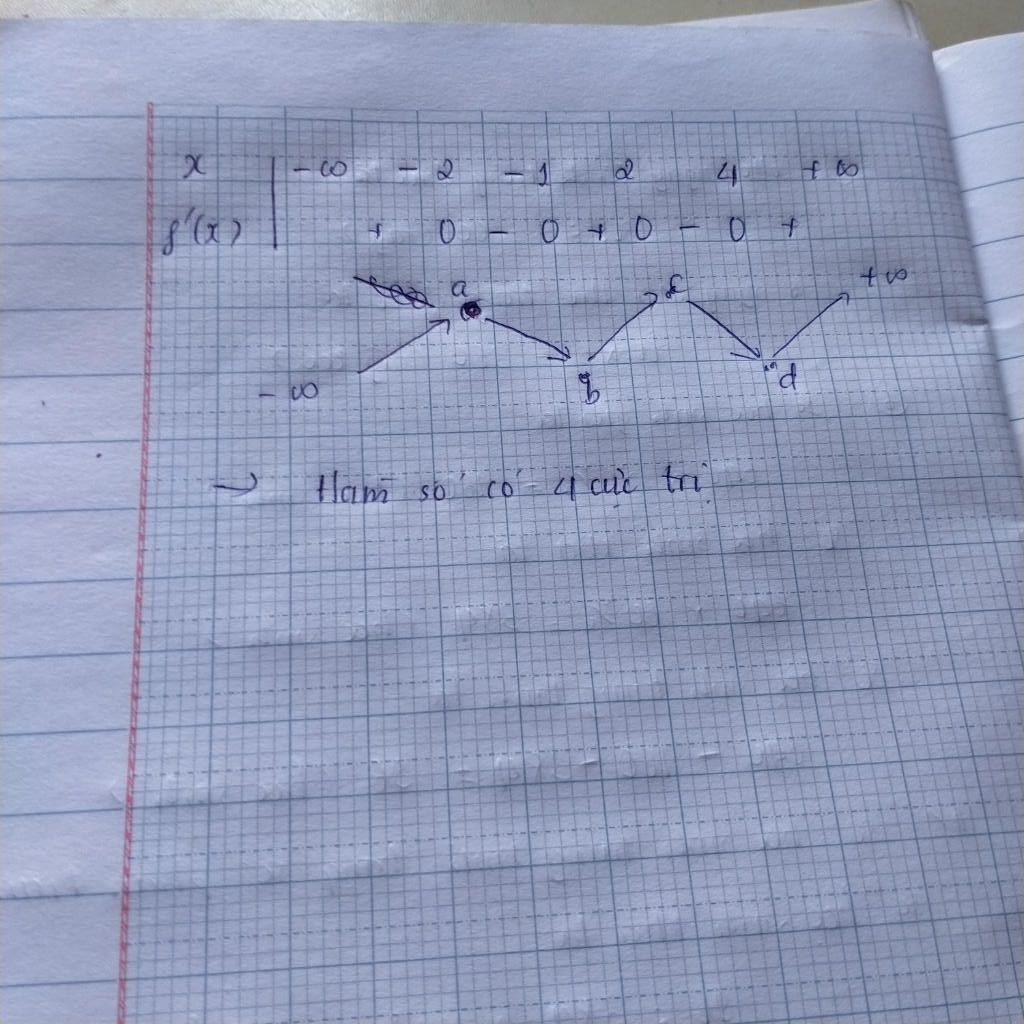 x | -∞ -2 -1 2 4 +∞
f'(x) | + 0 - 0 + 0 - 0 +
a +∞
-∞ b d
→ Hàm số có 4 cực trị